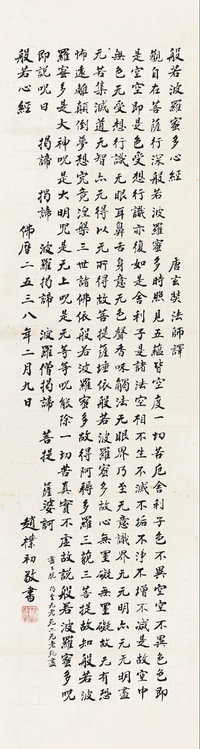 般若波羅蜜多心經 唐玄奘法師譯
觀自在菩薩行深般若波羅蜜多時照見五蘊皆空度一切苦厄舍利子色不異空空不異色色即
是空空即是色受想行識亦復如是舍利子是諸法空相不生不滅不垢不淨不增不減是故空中
无色无受想行識无眼耳鼻舌身意无色聲香味觸法无眼界乃至无意識界无无明亦无无明盡
无苦集滅道无智亦无得以无所得故菩提薩埵依般若波羅蜜多故心无罣礙无罣礙故无有恐
怖遠離顛倒夢想究竟涅槃三世諸佛依般若波羅蜜多故得阿耨多羅三藐三菩提故知般若波
羅蜜多是大神呪是大明呪是无上呪是无等等呪能除一切苦真實不虛故說般若波羅蜜多呪
即說呪曰 揭諦 揭諦 波羅揭諦 波羅僧揭諦 菩提 薩婆訶
盡下脫乃至无老死亦无老死盡
般若心經 佛曆二五三八年二月九日 趙樸初敬書